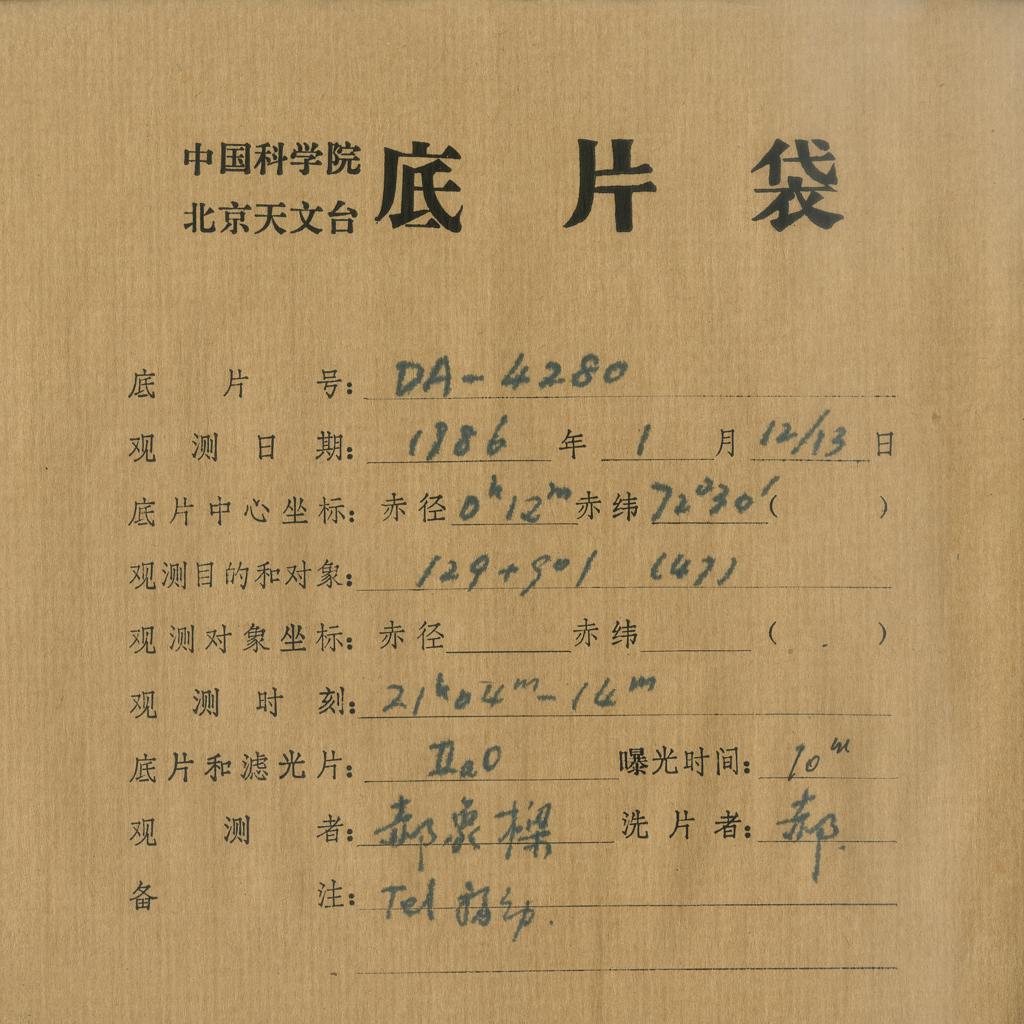 中国科学院
北京天文台
底片袋
底片号：DA-4280
观测日期：1986年1月12/13日
底片中心坐标：赤径0ʰ12ᵐ赤纬72°30′（ ）
观测目的和对象：129+901 (47)
观测对象坐标：赤径 赤纬 （ ）
观测时刻：21ʰ04ᵐ-14ᵐ
底片和滤光片：IIaO 曝光时间：10ᵐ
观测者：郝象樑 洗片者：郝
备注：Tel